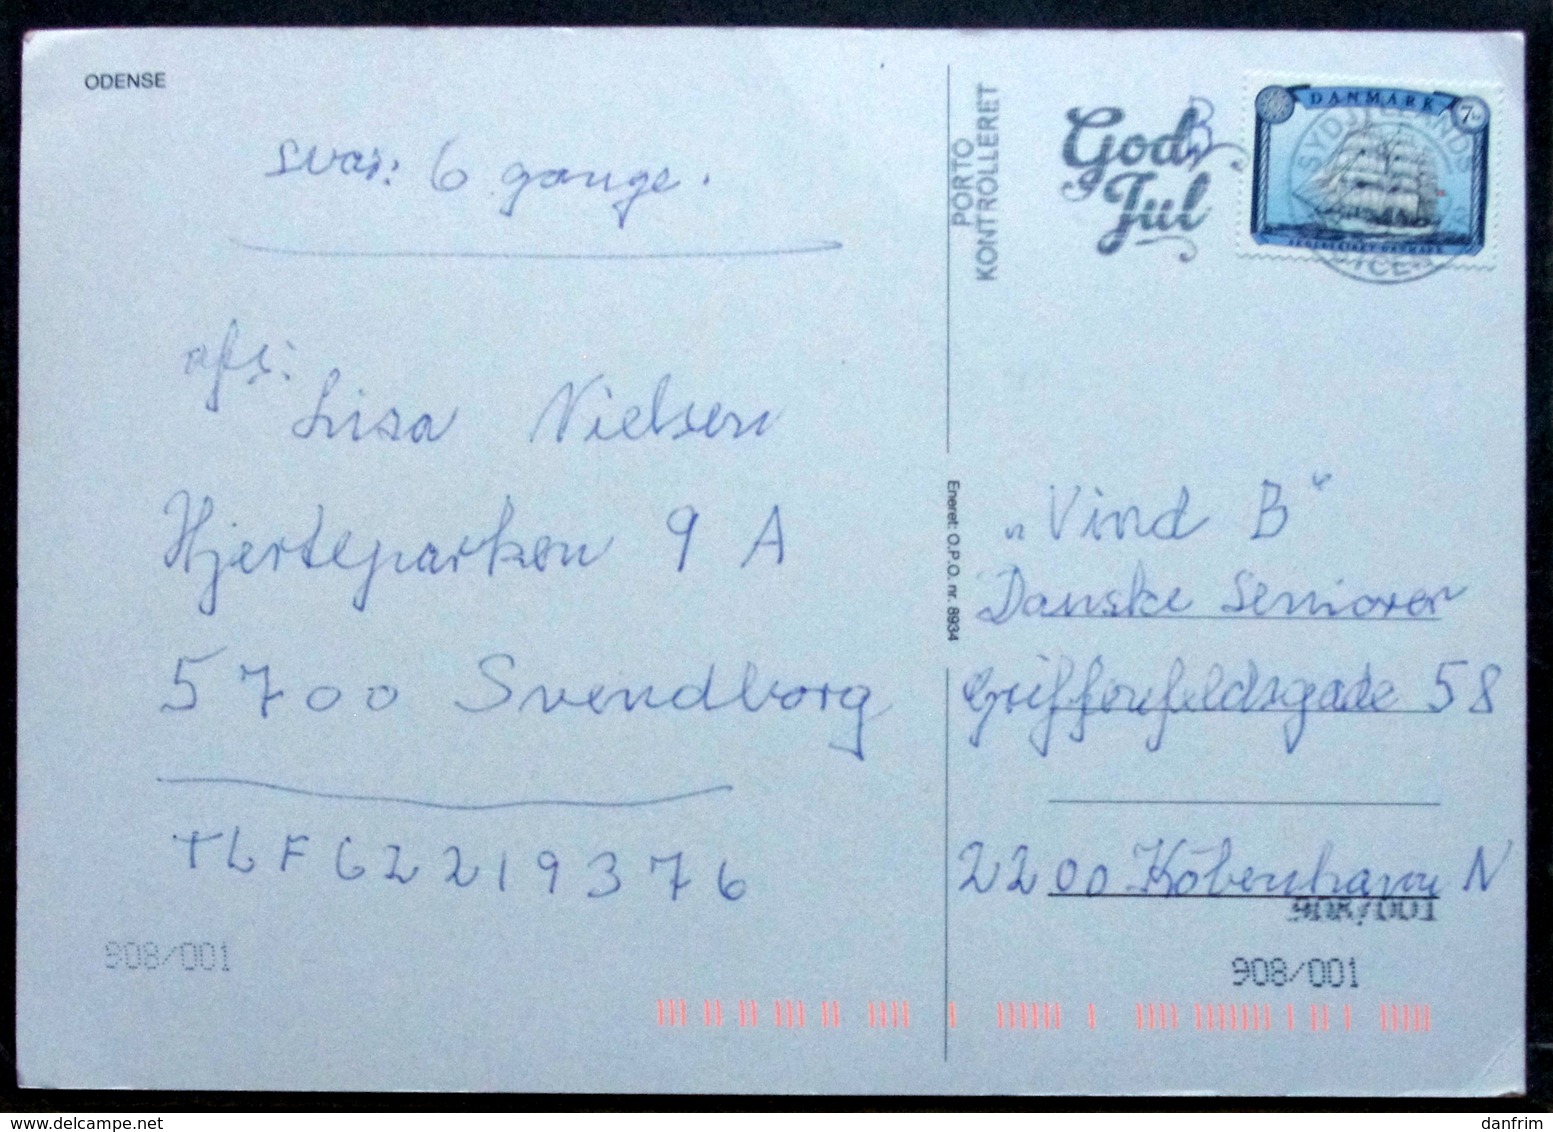 ODENSE
svar: 6 gange.
afs:
Lisa Nielsen
Hjerteparken 9 A
5700 Svendborg
TLF 62219376
908/001
PORTO
KONTROLLERET
God
Jul
B
DANMARK
7
SYDJYLLANDS
Eneret: O.P.O. nr. 8934
"Vind B"
Danske Seniorer
Griffenfeldsgade 58
2200 København N
908/001
908/001
danfrim